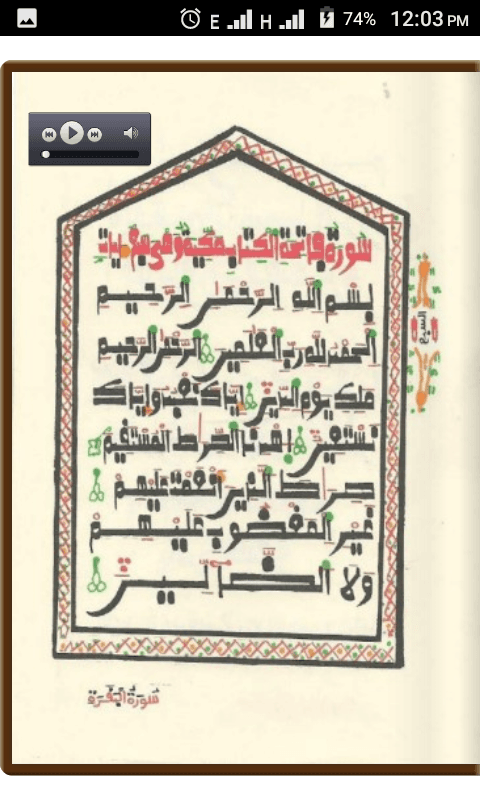 E H 74% 12:03 PM
سورة فاتحة الكتاب مكية وهي سبع ءايات
بسم الله الرحمن الرحيم
الحمد لله رب العلمين الرحمن الرحيم
ملك يوم الدين إياك نعبد وإياك
نستعين اهدنا الصرط المستقيم
صرط الذين أنعمت عليهم
غير المغضوب عليهم
ولا الضالين
سورة البقرة